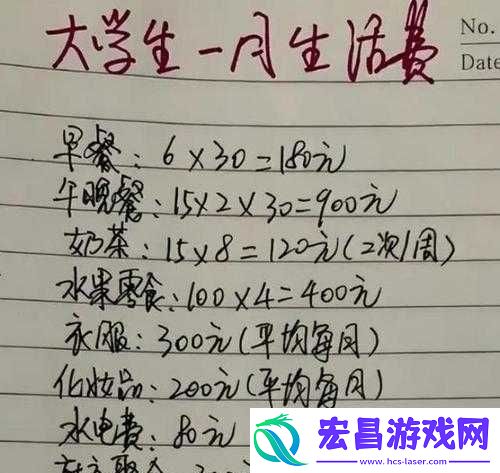 大学生一月生活费
No.
Date
早餐：6×30=180元
午晚餐：15×2×30=900元
奶茶：15×8=120元(2次/周)
水果零食：100×4=400元
衣服：300元(平均每月)
化妆品：200元(平均每月)
水电费：80元
宏昌游戏网
www.hcs-laser.com